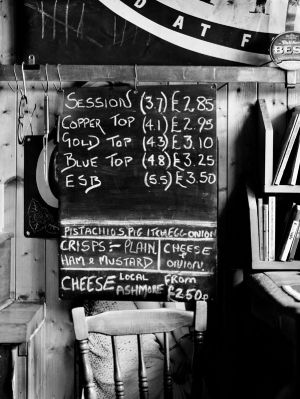 DATF
BES
SESSION (3.7) £2.85
COPPER TOP (4.1) £2.95
GOLD TOP (4.3) £3.10
BLUE TOP (4.8) £3.25
ESB (5.5) £3.50
PISTACHIOS, PIG ITCH EGG-ONION
CRISPS:- PLAIN CHEESE &
HAM & MUSTARD ONION
CHEESE LOCAL ASHMORE From £2.50p